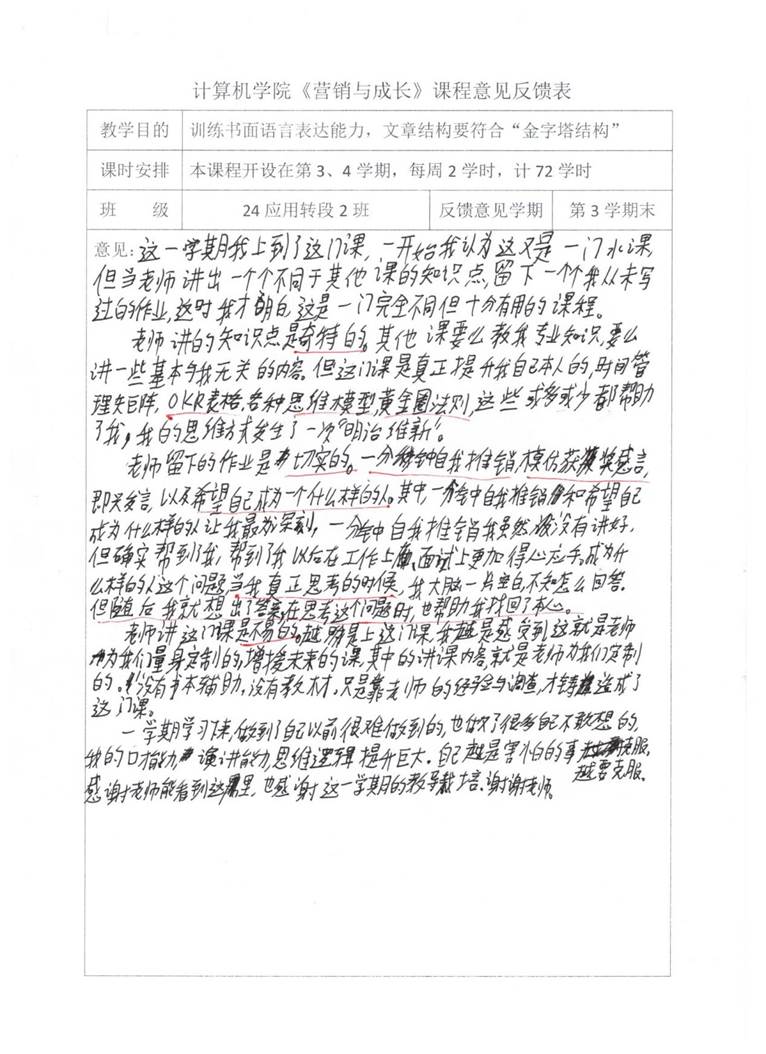 计算机学院《营销与成长》课程意见反馈表
教学目的 训练书面语言表达能力，文章结构要符合“金字塔结构”
课时安排 本课程开设在第3、4学期，每周2学时，计72学时
班 级 24应用转段2班 反馈意见学期 第3学期末
意见：这一学期我上到了这门课，一开始我认为这又是一门水课，
但当老师讲出一个个不同于其他课的知识点，留下一个个我从未写
过的作业，这时我才明白，这是一门完全不同但十分有用的课程。
老师讲的知识点是奇特的。其他课要么教我专业知识，要么
讲一些基本与我无关的内容。但这门课是真正提升我自己本人的，时间管
理矩阵，OKR表格，各种思维模型，黄金圈法则，这些或多或少都帮助
了我，我的思维方式发生了一次“明治维新”。
老师留下的作业是切实的。一分钟自我推销，模仿获奖感言，
即兴发言，以及希望自己成为一个什么样的人。其中，一分钟自我推销和希望自己
成为什么样的人让我最为深刻，一分钟自我推销我虽然没有讲好，
但确实帮到了我，帮到了我以后在工作上、面试上更加得心应手。成为什
么样的人这个问题，当我真正思考的时候，我大脑一片空白，不知怎么回答。
但随后我就想出了答案，在思考这个问题时，也帮助我找回了本心。
老师讲这门课是不易的。越是上这门课，我越是感受到这就是老师
为我们量身定制的，增援未来的课。其中的讲课内容就是老师为我们定制
的。没有书本辅助，没有教材，只是靠老师的经验与调查，才铸造成了
这门课。
一学期学习下来，做到了自己以前很难做到的，也做了很多自己不敢想的，
我的口才能力，演讲能力，思维逻辑提升巨大。自己越是害怕的事
越要克服。
感谢老师能看到这里，也感谢这一学期的教导栽培。谢谢老师。